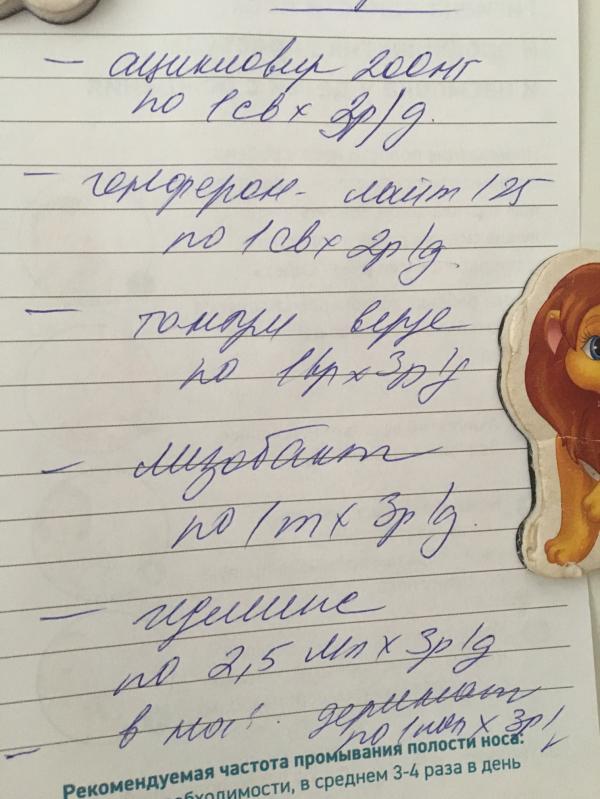 — ацикловир 200мг
по 1св х 3р/д.
— генферон - лайт 125
по 1св х 2р/д.
—
по 1 х 3р/д
— лизобакт
по 1т х 3р/д.
—
по 2,5 мл х 3р/д
— в деринат
по 1кап х 3р/
Рекомендуемая частота промывания полости носа:
в среднем 3-4 раза в день